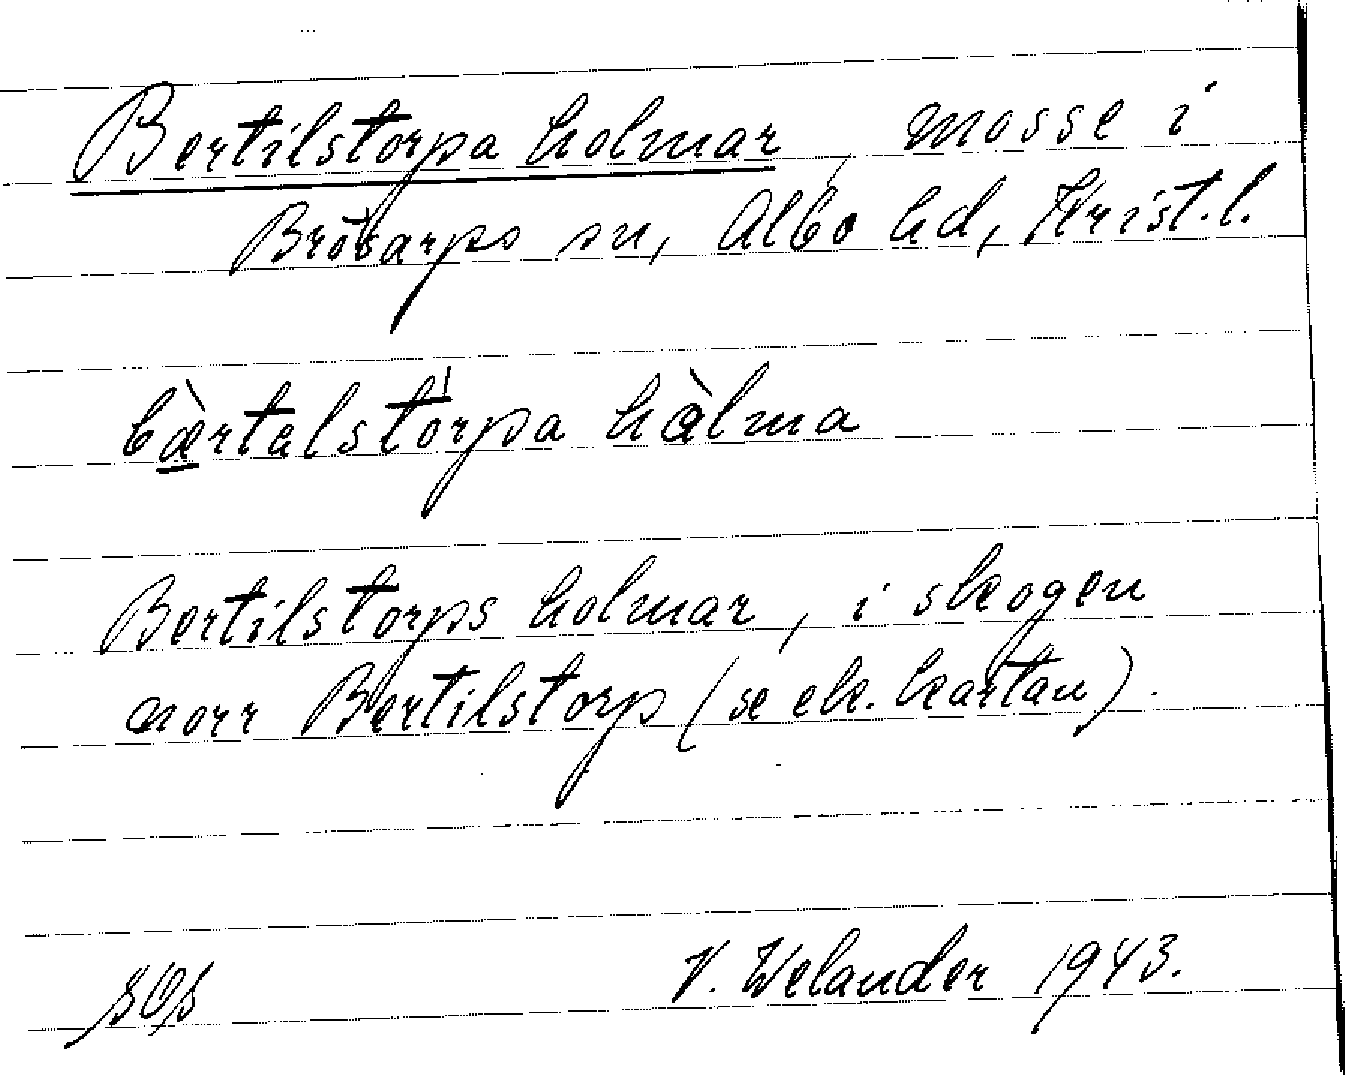 Bertilstorpa holmar, mosse i
Brösarps sn, Albo hd, Krist. l.
bæ̀rtalstòrpa hàlma
Bertilstorps holmar, i skogen
norr Bertilstorp (se ek. kartan).
V. Welander 1943.